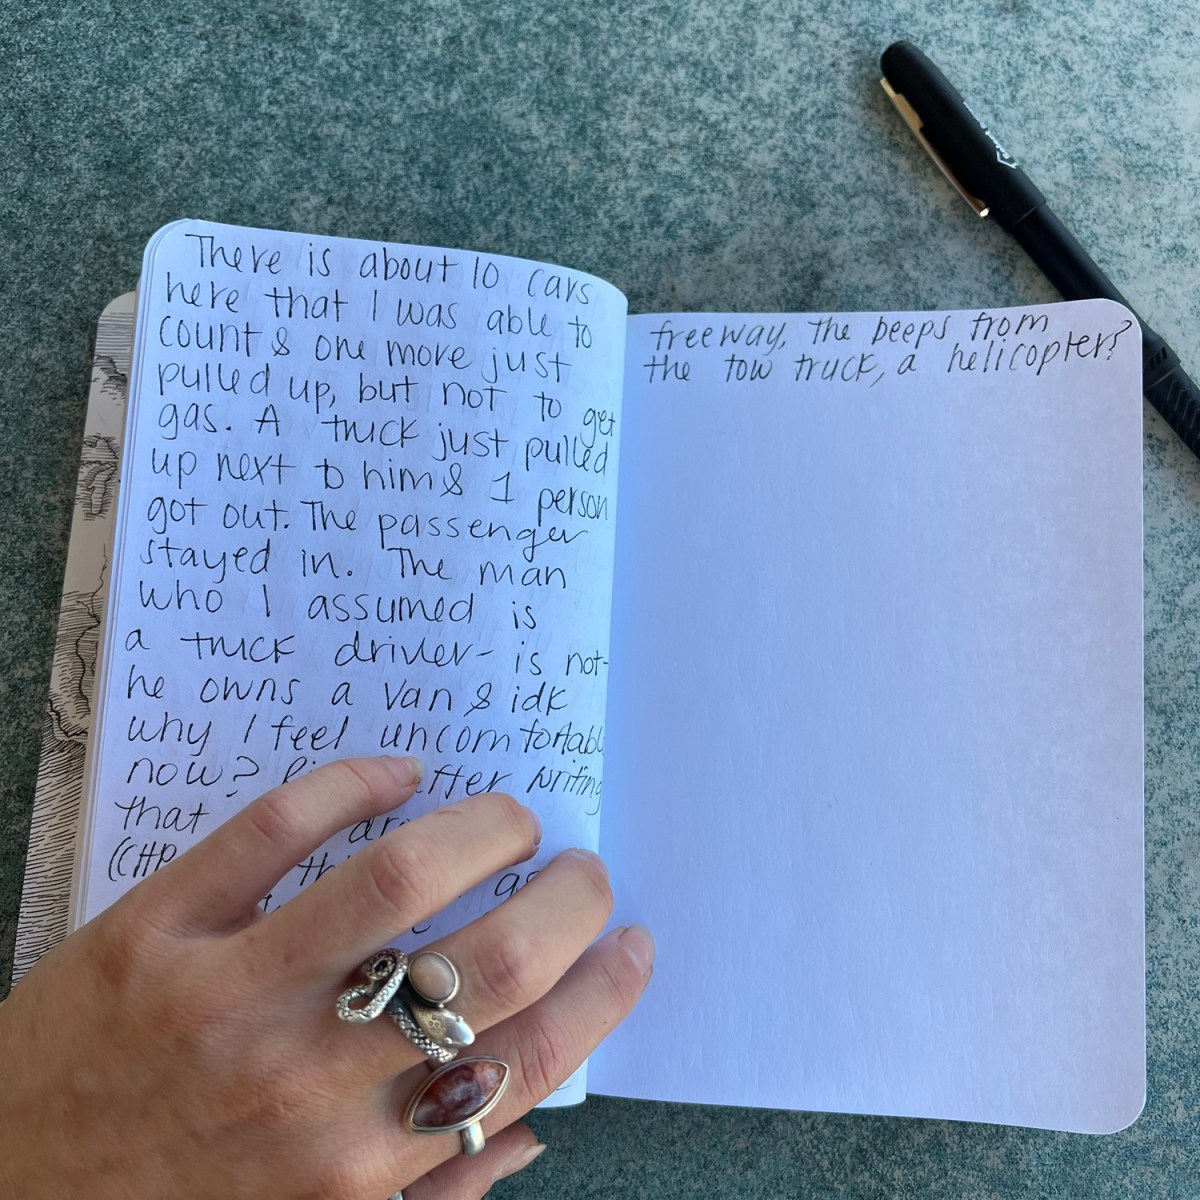 There is about 10 cars
here that I was able to
count & one more just
pulled up, but not to get
gas. A truck just pulled
up next to him & 1 person
got out. The passenger
stayed in. The man
who I assumed is
a truck driver- is not-
he owns a van & idk
why I feel uncomfortable
now? after writing
that
(CHP
freeway, the beeps from
the tow truck, a helicopter?